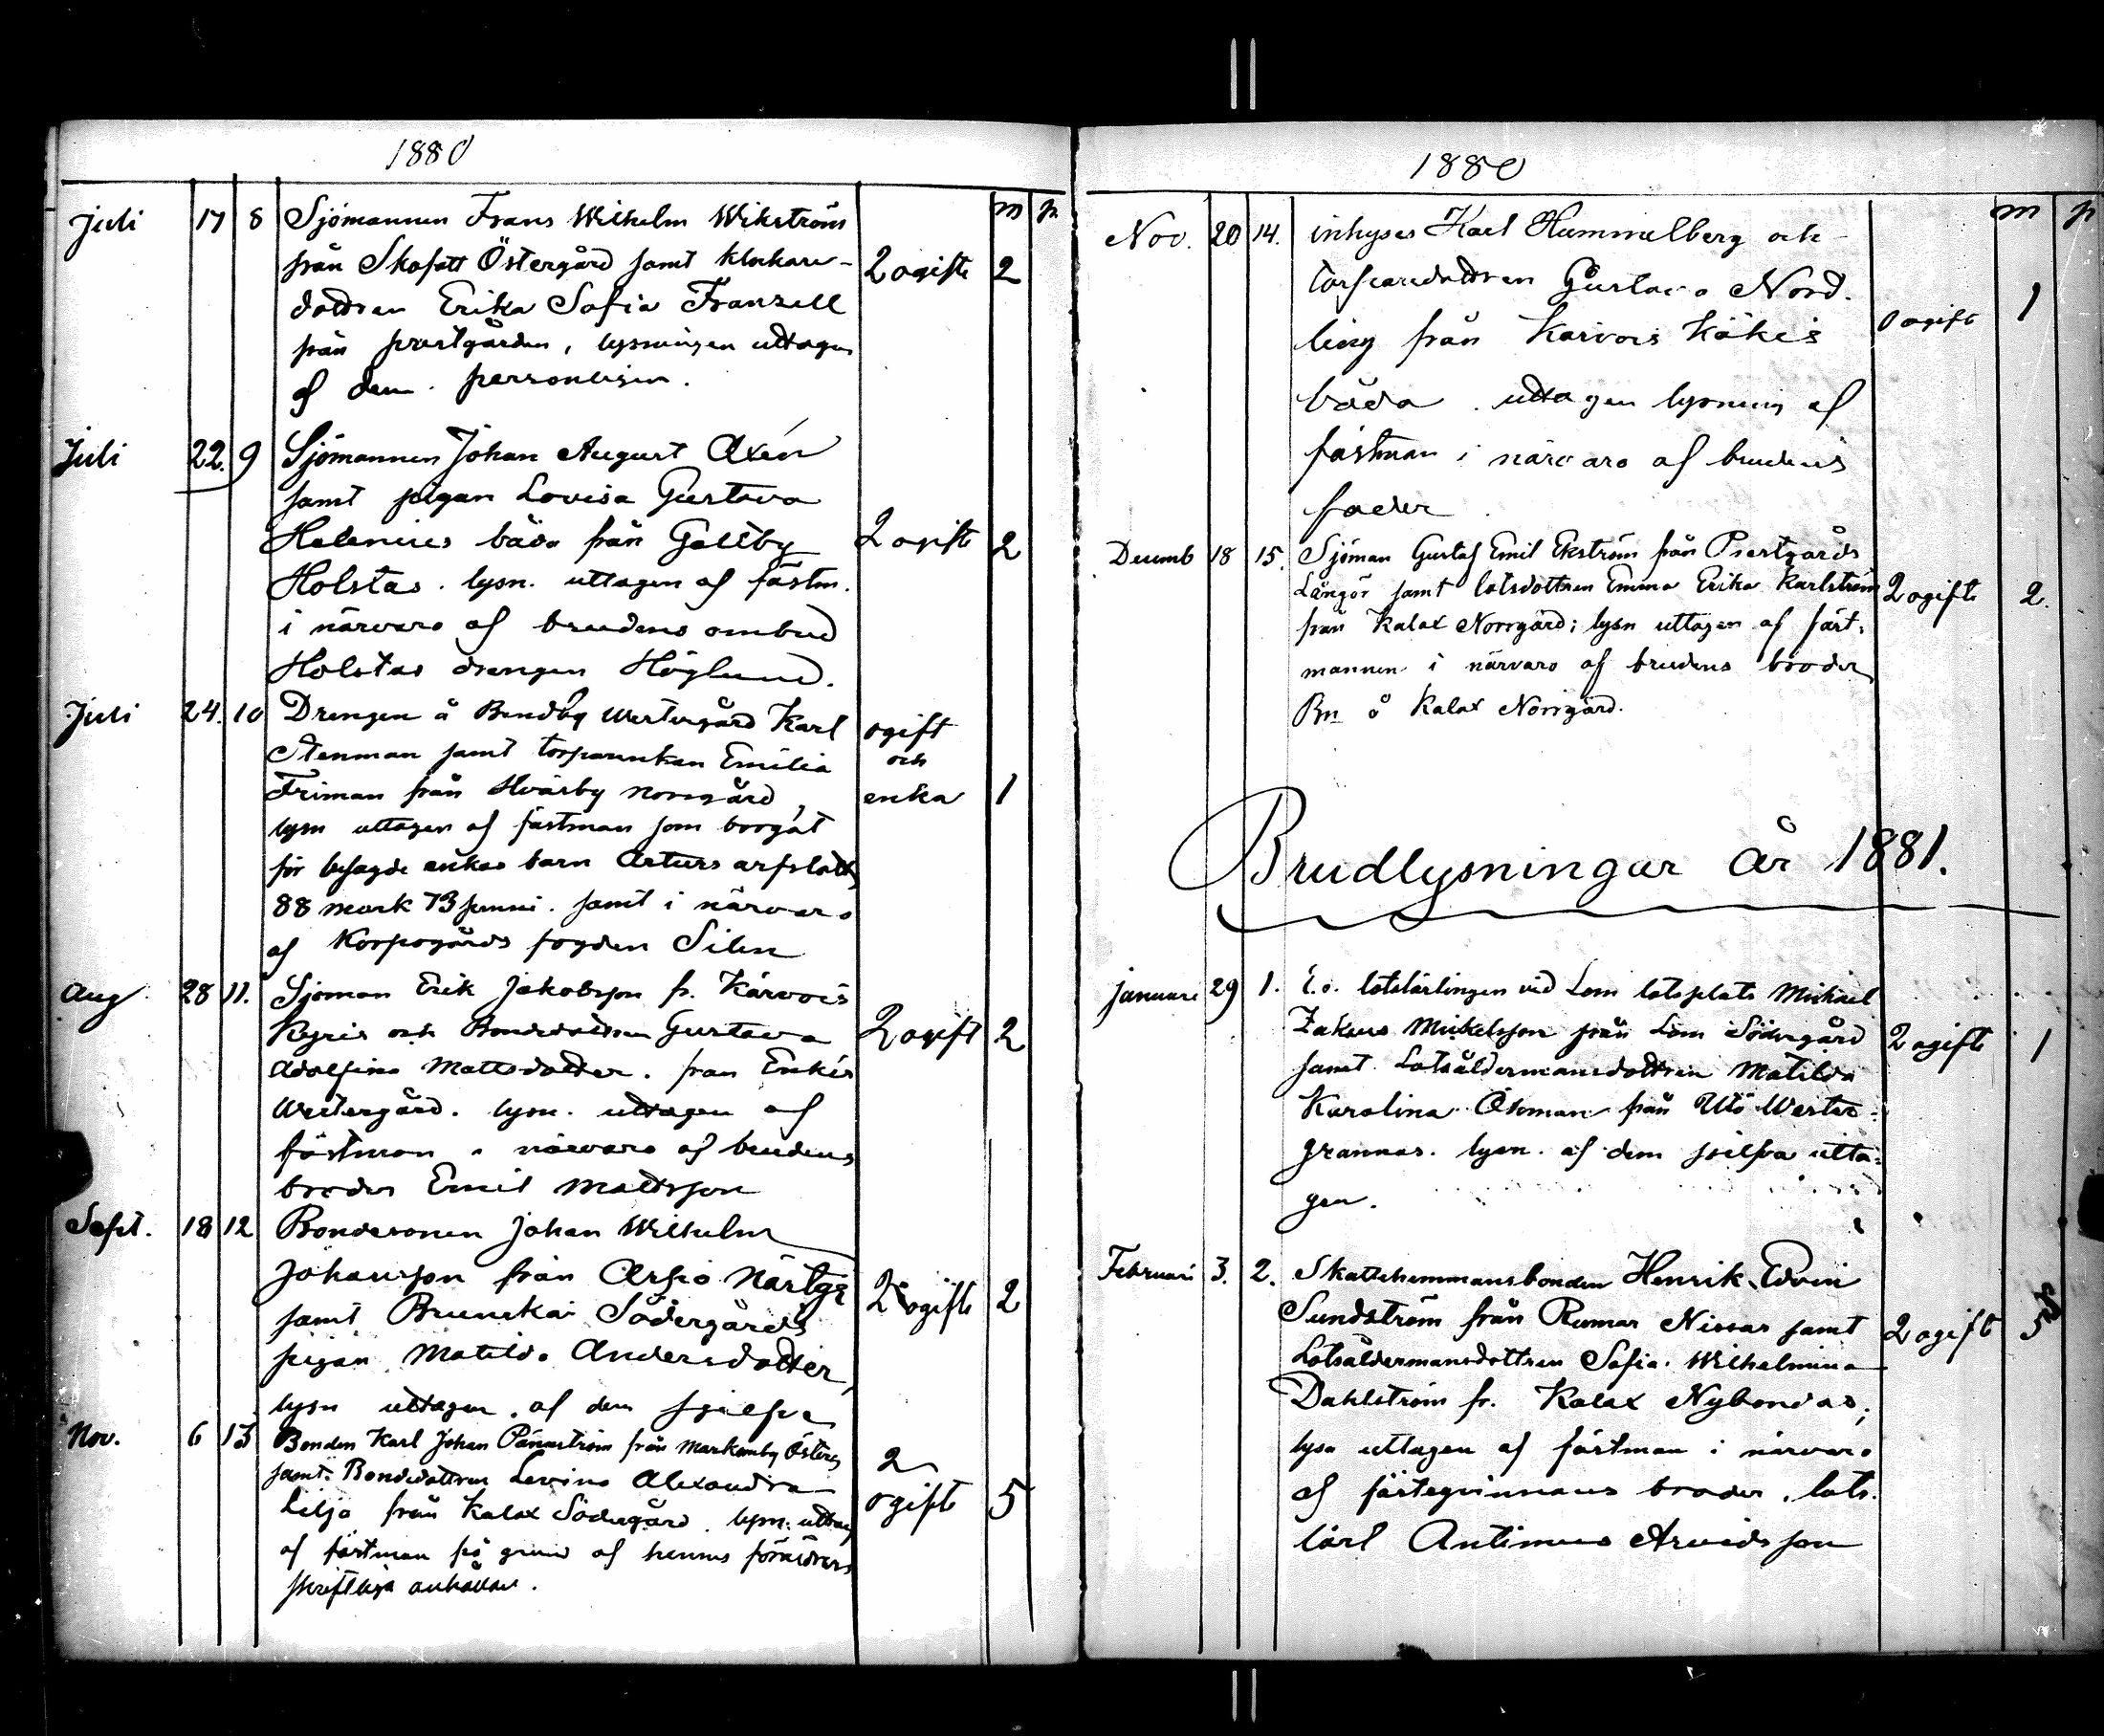 1880
m p.
Juli 17 8 Sjömannen Frans Wilhelm Wikström
från Skofatt Östergård samt klockare-
dottren Erika Sofia Franzell
från prestgården, lysningen uttagen
af dem personligen.
2 ogifte 2
Juli 22. 9 Sjömannen Johan August Oxén
samt pigan Lovisa Gustava
Helenius båda från Galtby
Holstas. lysn. uttagen af fästm.
i närvaro af brudens ombud
Holstas drengen Höglund.
2 ogift 2
Juli 24. 10 Drengen å Bendby Westergård Karl
Stenman samt torparenkan Emilia
Friman från Hvarby norrgård,
lysn uttagen af fästman som borgat
för besagde enkas barn Arturs arfslott
88 mark 73 penni. samt i närvaro
af Korpogårds fogden Silen
ogift
och
enka 1
Aug 28 11. Sjöman Erik Jakobsson fr. Kärvois
och Bondedottren Gustava
Adolfina Mattsdotter. från Enkis
Westergård. lysn. uttagen af
fästman i närvaro af brudens
broder Emil Mattsson
2 ogift 2
Sept. 18 12 Bondesonen Johan Wilhelm
Johansson från Arpö
samt Brunskär Södergårds
pigan Matilda Andersdotter,
lysn uttagen af dem sjelfva
2 ogifte 2
Nov. 6 13 Bonden Karl Johan från Markomby Österg
samt Bondedottren Levina Alexandra
Lilja från Kalax Södergård. lysn. uttag
af fästman på grund af hennes föräldrars
skriftliga anhållan.
2
ogifte 5
1880
m p
Nov. 20 14. inhyses Karl Hummelberg och
torparedottren Gustava Nord-
ling från Kärvois Käkis
båda. uttagen lysning af
fästman i närvaro af brudens
fader
ogift 1
Decemb 18 15. Sjöman Gustaf Emil Ekström från Prestgårds
Långör samt lotsdottren Emma Erika Karlström
från Kalax Norrgård; lysn uttagen af fäst-
mannen i närvaro af brudens broder
Bn å Kalax Norrgård.
2 ogifte 2.
Brudlysningar år 1881.
Januari 29 1. E.o. lotslärlingen vid Lom lotsplats Mickael
Zakeus Mickelsson från Lom Södergård
samt Lotsåldermansdottren Matilda
Karolina Ösman från Utö Wester-
grannas. lysn. af dem sjelfva utta-
gen.
2 ogifte 1
Februari 3. 2. Skattehemmansbonden Henrik Edvin
Sundström från Rumar Nissas samt
Lotsåldermansdottren Sofia Wilhelmina
Dahlström fr. Kalax Nybondas;
lysn uttagen af fästman i närvaro
af fästeqvinnans broder, lots.
lärl Antimus Arvidsson
2 ogift 5